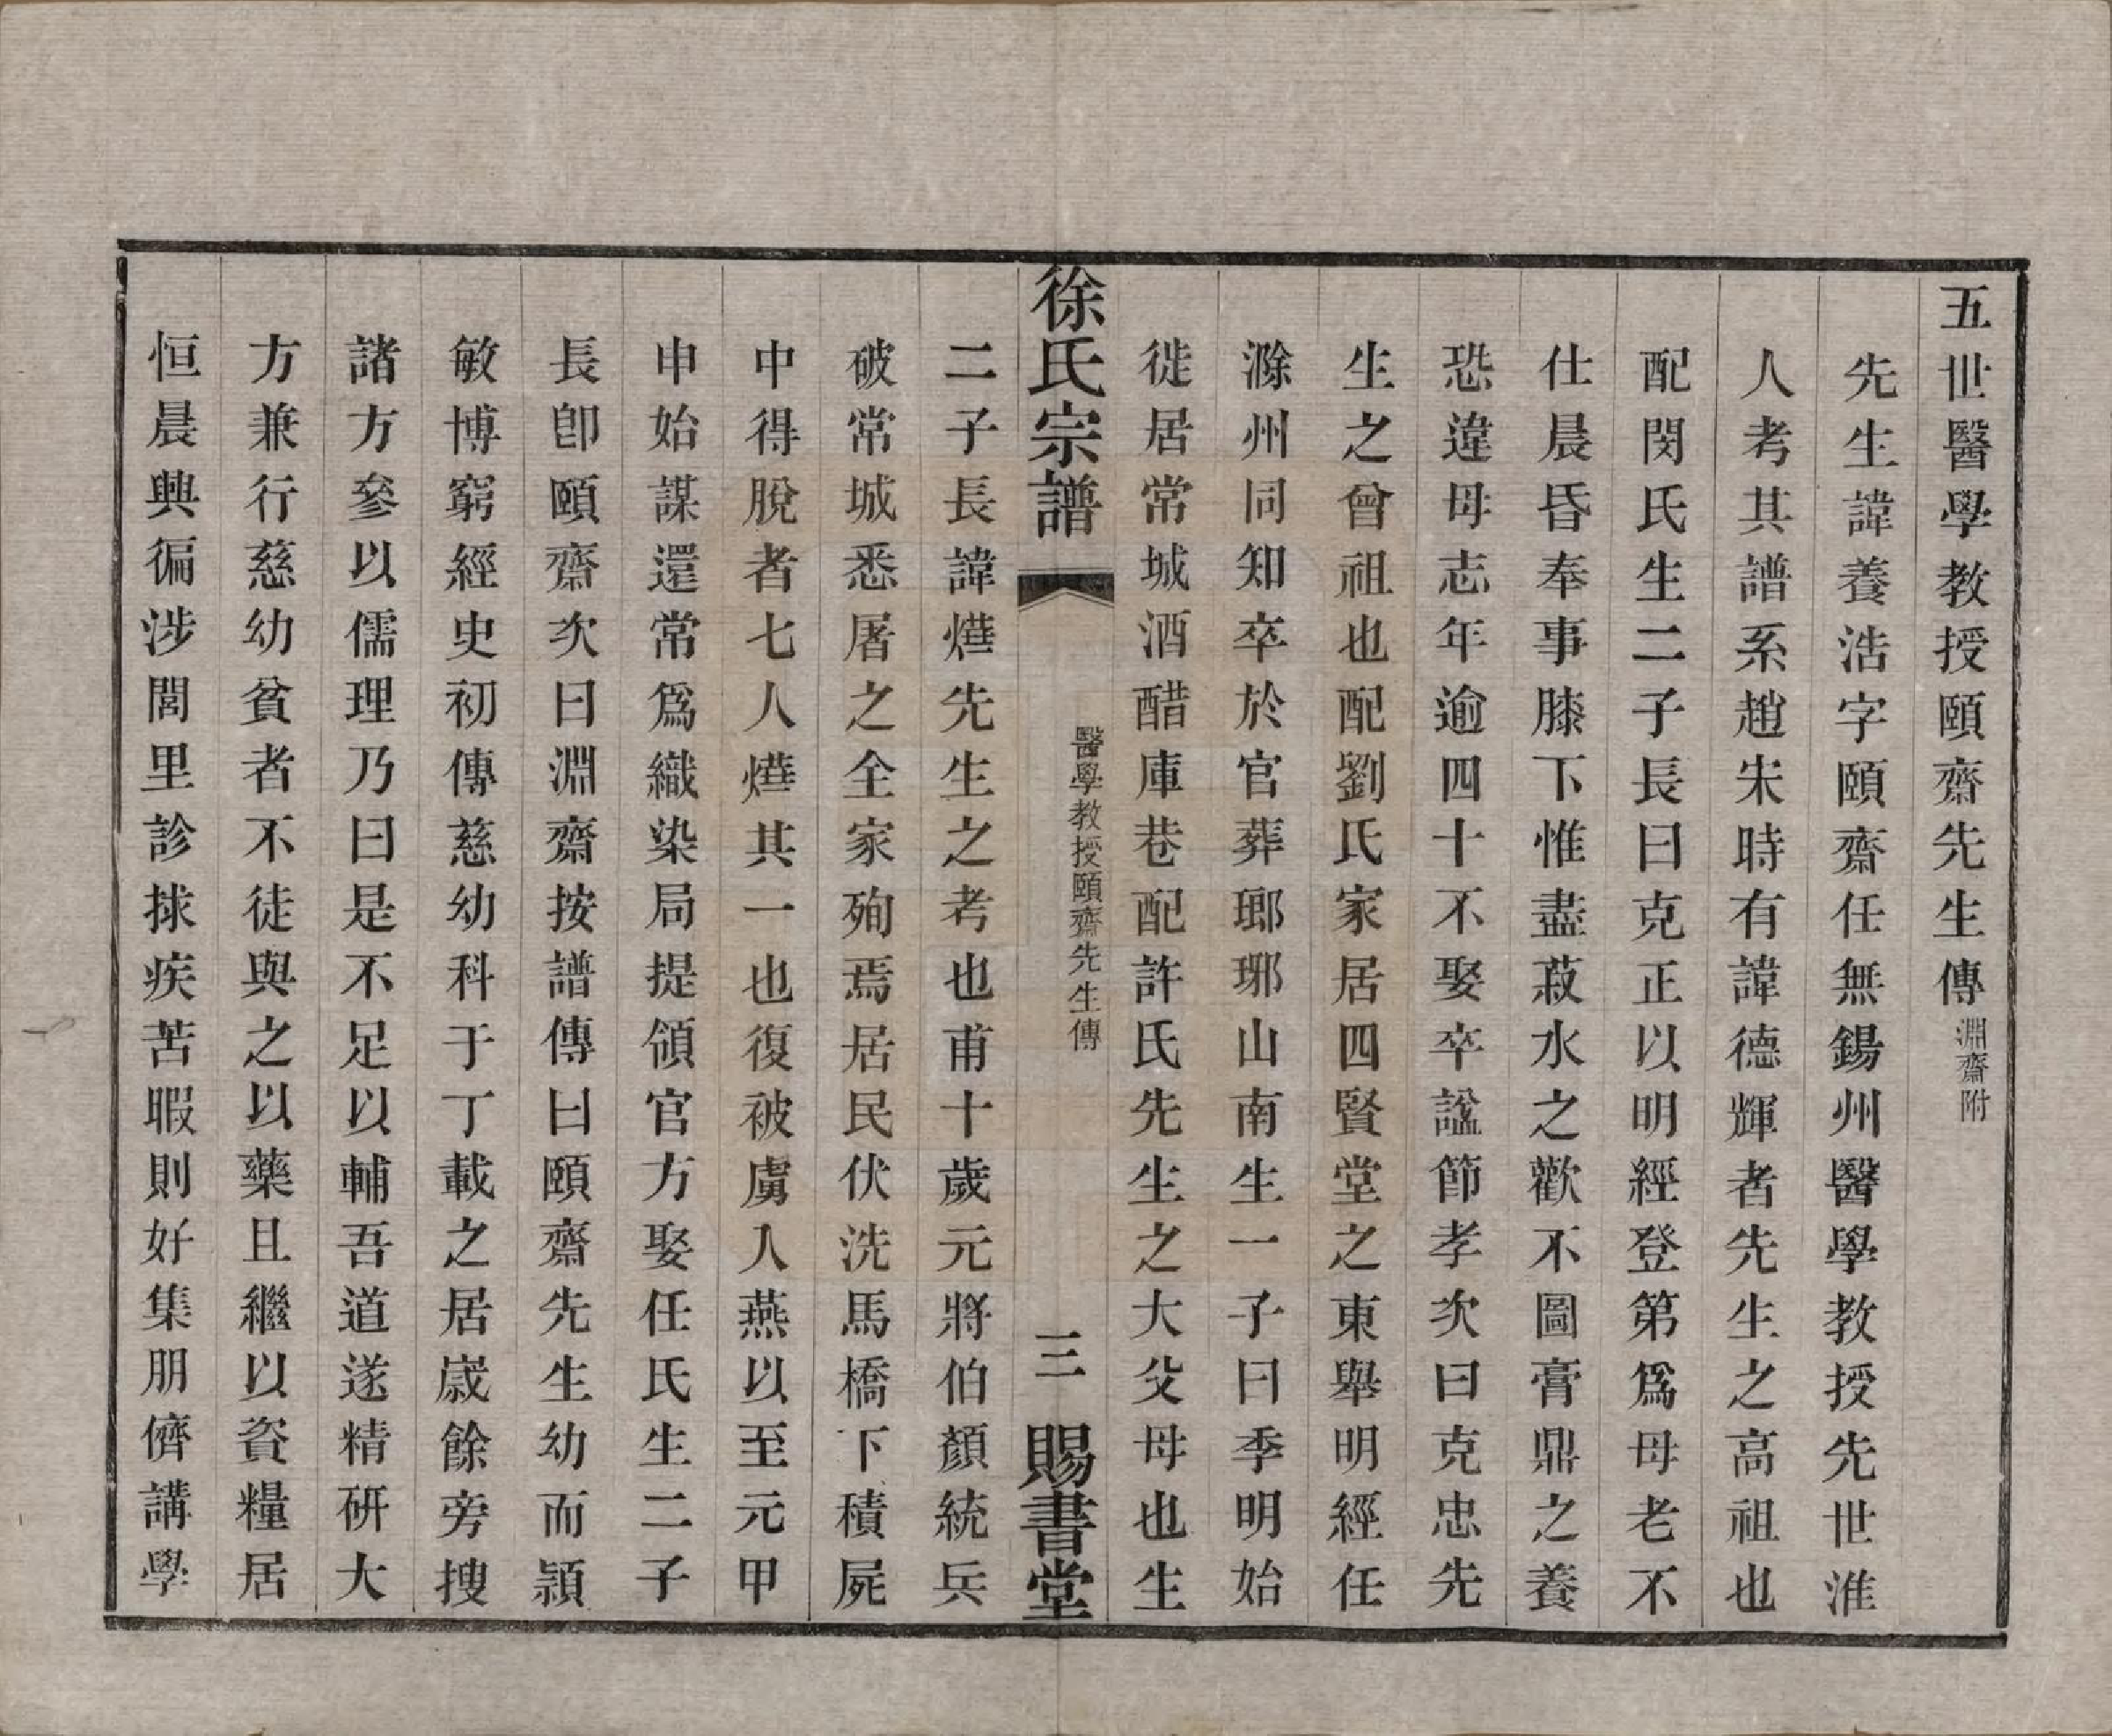 五世醫學教授頤齋先生傳淵齋附
先生諱養浩字頤齋任無錫州醫學教授先世淮
人考其譜系趙宋時有諱德輝者先生之高祖也
配閔氏生二子長曰克正以明經登第爲母老不
仕晨昏奉事膝下惟盡菽水之歡不圖膏鼎之養
恐違母志年逾四十不娶卒諡節孝次曰克忠先
生之曾祖也配劉氏家居四賢堂之東舉明經任
滁州同知卒於官葬瑯琊山南生一子曰季明始
徙居常城酒醋庫巷配許氏先生之大父母也生
徐氏宗譜
醫學教授頤齋先生傳
三
賜書堂
二子長諱燁先生之考也甫十歲元將伯顏統兵
破常城悉屠之全家殉焉居民伏洗馬橋下積屍
中得脫者七人燁其一也復被虜入燕以至元甲
申始謀還常爲織染局提領官方娶任氏生二子
長卽頤齋次曰淵齋按譜傳曰頤齋先生幼而穎
敏博窮經史初傳慈幼科于丁載之居歲餘旁搜
諸方參以儒理乃曰是不足以輔吾道遂精研大
方兼行慈幼貧者不徒與之以藥且繼以資糧居
恒晨興徧涉閭里診捄疾苦暇則好集朋儕講學